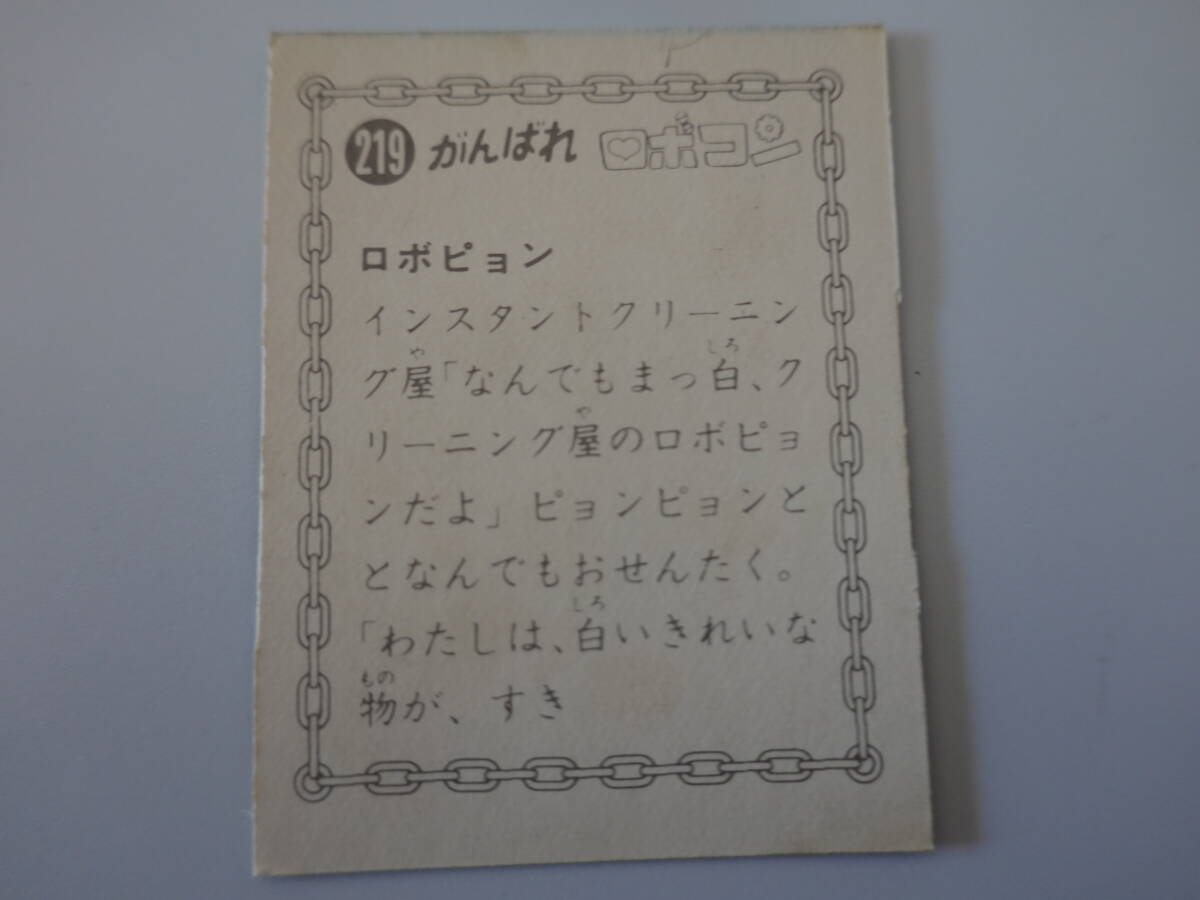 219 がんばれ ロボコン
ロボピョン
インスタントクリーニン
グ屋「なんでもまっ白、ク
リーニング屋のロボピョ
ンだよ」ピョンピョンと
となんでもおせんたく。
「わたしは、白いきれいな
物が、すき